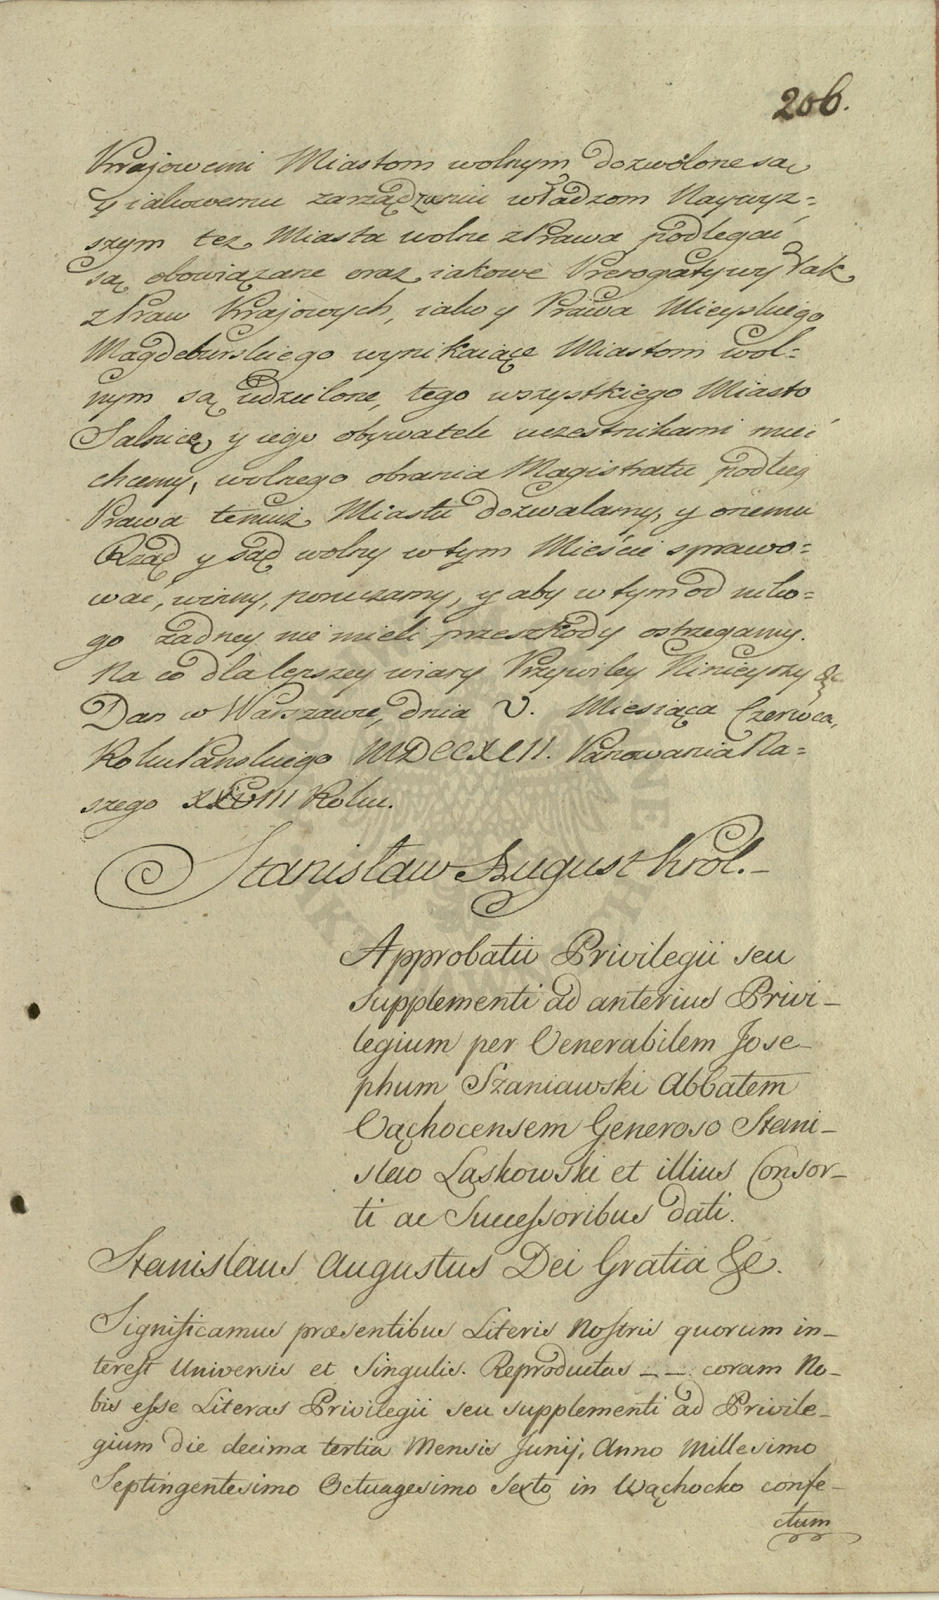 206.
Kraiowemi Miastom wolnym dozwolone są
y iakowemu zarządzeniu władzom Naywyż=
szym też Miasta wolne z Prawa podlegać
są obowiązane oraz iakowe Prerogatywy tak
z Praw Krajowych, iako y Prawa Mieyskiego
Magdeburskiego wynikaiące Miastom wol=
nym są udzielone, tego wszystkiego Miasto
Salnicę y iego obywatele uczestnikami mieć
chcemy, wolnego obrania Magistratu podług
Prawa temuż Miastu dozwalamy, y onemu
Rząd y Sąd wolny w tym Mieście sprawo=
wać, winny, poruczamy, y aby w tym od niko=
go żadney nie mieli przeszkody ostrzegamy.
Na co dla lepszey wiary Przywiley Ninieyszy &c
Dan w Warszawie, dnia V. Miesiąca Czerwca,
Roku Pańskiego MDCCXCII. Panowania Na=
szego XXVIII Roku.
Stanisław August Król.
Approbatio Privilegii seu
supplementi ad anterius Privi-
legium per Venerabilem Jose-
phum Szaniawski Abbatem
Vąchocensem Generoso Stani-
slao Laskowski et illius Consor-
ti ac Successoribus dati.
Stanislaus Augustus Dei Gratia &c.
Significamus præsentibus Literis Nostris quorum in-
terest Universis et Singulis. Reproductas — — coram No-
bis esse Literas Privilegii seu supplementi ad Privile-
gium die decima tertia Mensis Junij, Anno Millesimo
Septingentesimo Octuagesimo Sexto in Wąchocko confe-
ctum